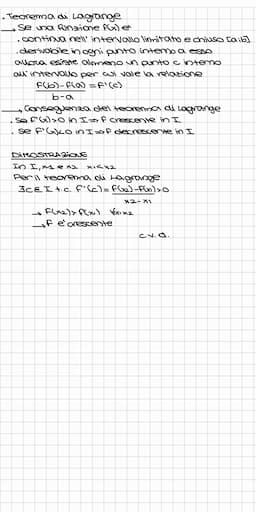 . Teorema di Lagrange
→ Se una funzione f(x) è
. continua nell'intervallo limitato e chiuso [a;b]
. derivabile in ogni punto interno a esso
allora esiste almeno un punto c interno
all'intervallo per cui vale la relazione
F(b)-F(a) = F'(c)
b-a
→ Conseguenza del teorema di Lagrange
. Se F'(x)>0 in I ⇒ F crescente in I
. Se F'(x)<0 in I ⇒ F decrescente in I
DIMOSTRAZIONE
In I, x1 e x2 x1<x2
Per il teorema di Lagrange
∃c∈I t.c. F'(c) = F(x2)-F(x1) >0
x2-x1
→ F(x2)>F(x1) ∀x1x2
→ F è crescente
c.v.d.